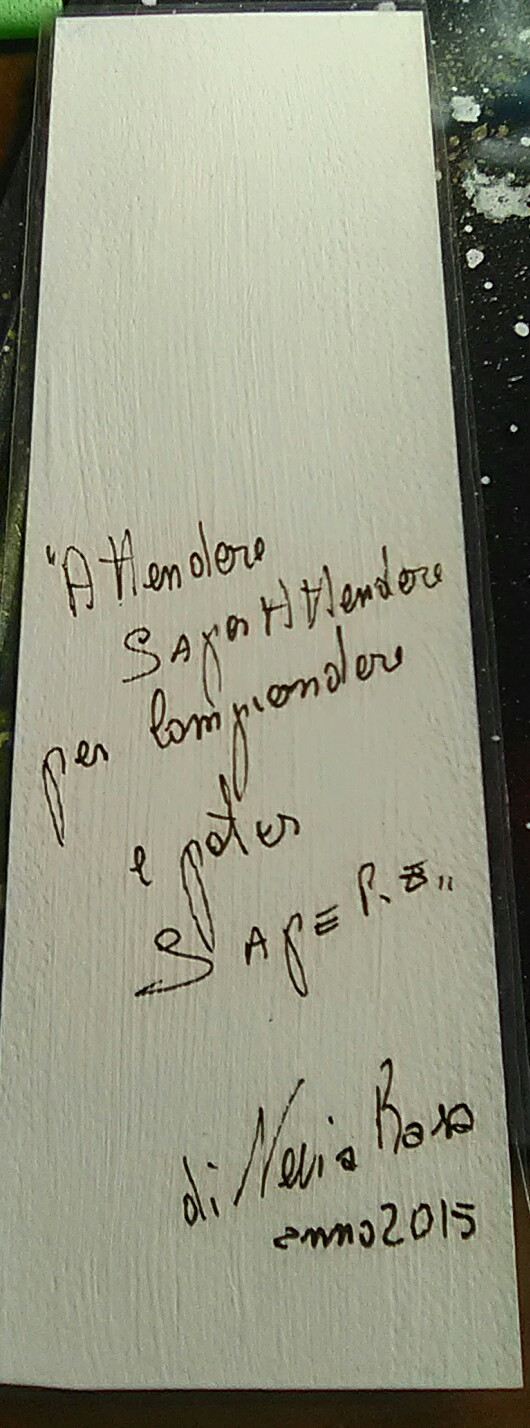 "Attendere
SAper Attendere
per Comprendere
e poter
SAPERE"
di Nevia Rasa
anno 2015